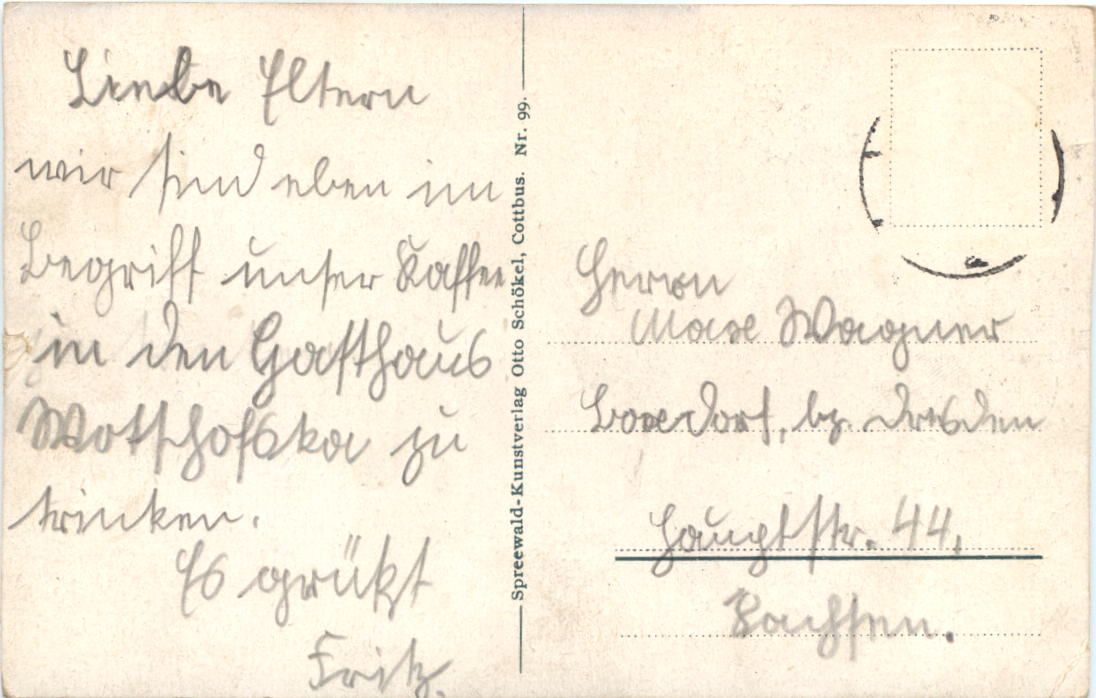 Liebe Eltern
wir sind eben im
Begriff unser Kaffee
in den Gasthaus
Wotschofska zu
trinken.
Es grüßt
Fritz.
Spreewald-Kunstverlag Otto Schökel, Cottbus. Nr. 99.
Herrn
Max Wagner
Boxdorf, bz. Dresden
Hauptstr. 44.
Sachsen.